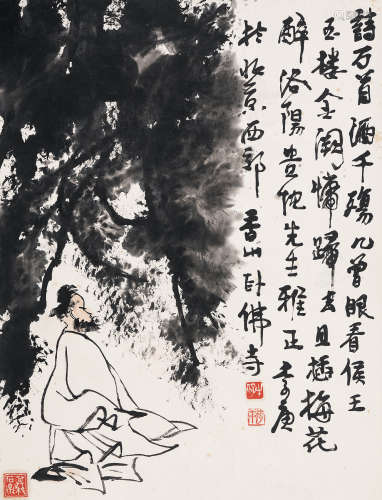 詩万首酒千殤几曾眼看侯王
玉楼金阙慵歸去且插梅花
醉洛陽贵忱先生雅正
於北京西郊香山卧佛寺